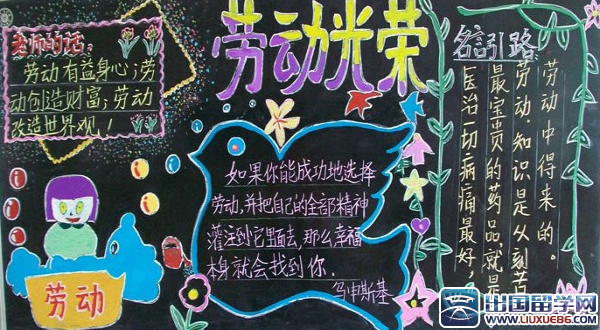 劳动光荣
老师的话：
劳动有益身心；劳
动创造财富；劳动
改造世界观！
如果你能成功地选择
劳动，并把自己的全部精神
灌注到它里面去，那么幸福
本身就会找到你．
乌申斯基
名言引路
医治一切病痛最好，
最宝贵的药品，就是
劳动，知识是从刻苦
劳动中得来的。
劳动
出国留学网
www.liuxue86.com